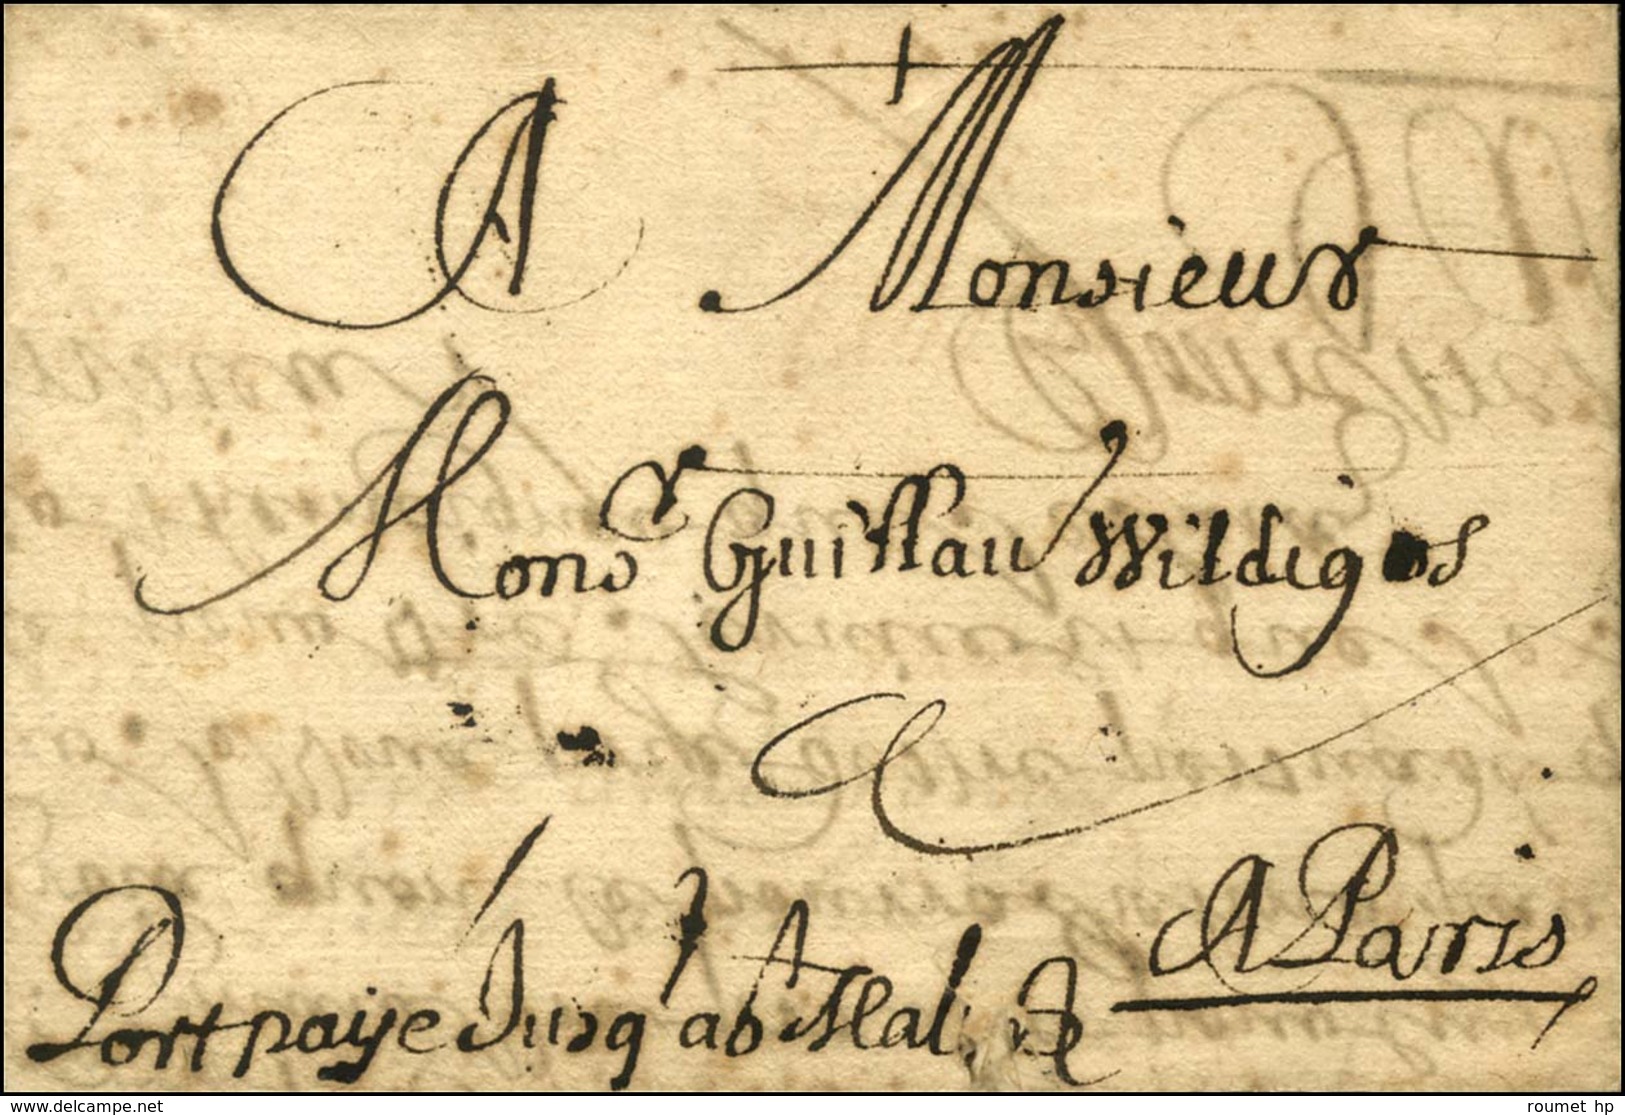 A Monsieur
Monsr Guillau Wildigos
A Paris
Port paÿe Jusq
www.delcampe.net
roumet hp